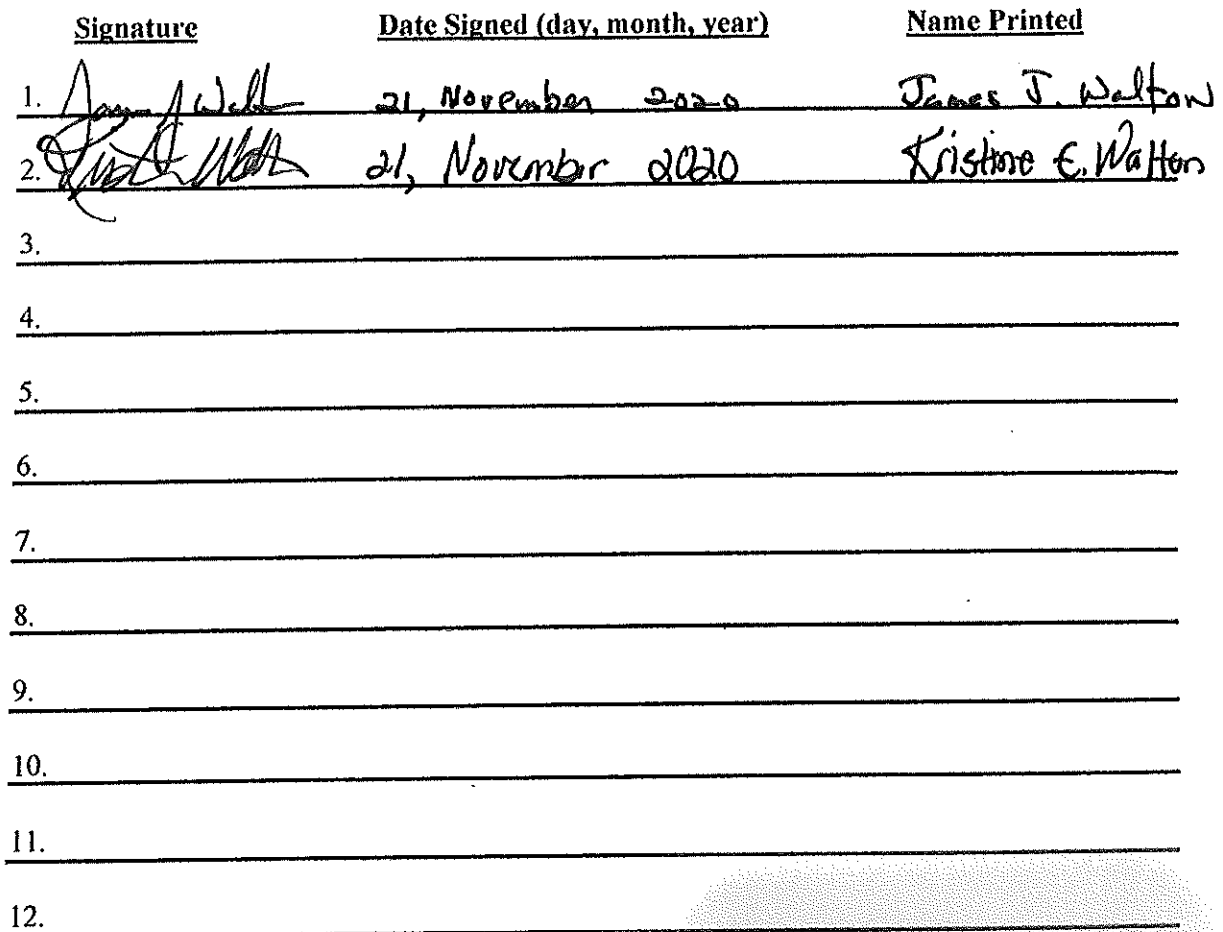 Signature Date Signed (day, month, year) Name Printed
1. James J Walton 21, November 2020 James J. Walton
2. 21, November 2020 Kristine E. Walton
3.
4.
5.
6.
7.
8.
9.
10.
11.
12.